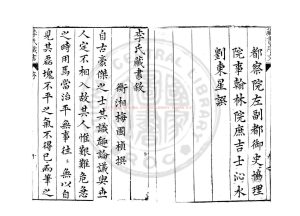 都察院左副都御史協理
院事翰林院庶吉士沁水
劉東星撰
李氏藏書敘
衡湘梅國楨撰
自古豪傑之士其識趣論議與世
人定不相入故其人惟艱難危急
之時用焉當治平無事往往無以自
見其磊塊不平之氣不得已而筆之